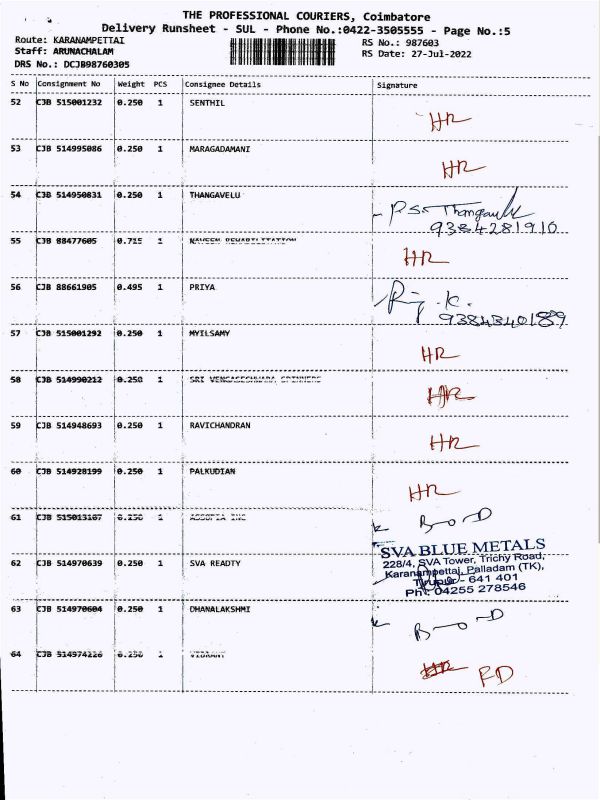 THE PROFESSIONAL COURIERS, Coimbatore
Delivery Runsheet - SUL - Phone No.:0422-3505555 - Page No.:5
Route: KARANAMPETTAI
RS No.: 987603
Staff: ARUNACHALAM
RS Date: 27-Jul-2022
DRS No.: DCJB98760305
S No Consignment No Weight PCS Consignee Details Signature
52 CJB 515001232 0.250 1 SENTHIL HR
53 CJB 514995086 0.250 1 MARAGADAMANI HR
54 CJB 514950831 0.250 1 THANGAVELU P.S. Thangavelu
9384281910
55 CJB 88477605 0.715 1 NAVEEN REHABILITATION HR
56 CJB 88661905 0.495 1 PRIYA Priy .K.
9384340189
57 CJB 515001292 0.250 1 MYILSAMY HR
58 CJB 514990212 0.250 1 SRI SPINNERS HR
59 CJB 514948693 0.250 1 RAVICHANDRAN HR
60 CJB 514928199 0.250 1 PALKUDIAN HR
61 CJB 515013167 0.250 1 INC
62 CJB 514970639 0.250 1 SVA READTY SVA BLUE METALS
228/4, SVA Tower, Trichy Road,
Karanampettai, Palladam (TK),
Tirupur - 641 401
Ph : 04255 278546
63 CJB 514970604 0.250 1 DHANALAKSHMI
64 CJB 514974226 0.250 1 VIBRANT HR RD